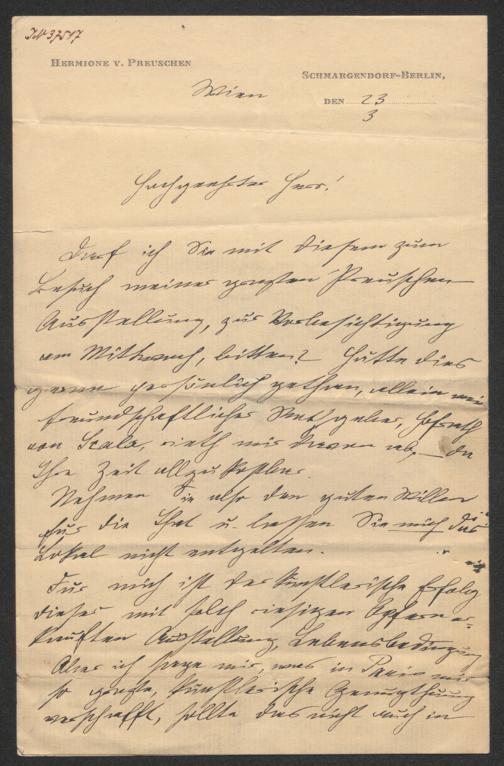 IN 37517
HERMIONE V. PREUSCHEN
SCHMARGENDORF-BERLIN,
Wien
DEN 23
3
Hochgeehrter Herr!
Darf ich Sie mit diesem zum
Besuch meiner ganzen Preuschen
Ausstellung, zur Vorbesichtigung
am Mittwoch, bitten? Hätte dies
gerne persönlich gethan, allein mein
freundschaftlicher Rathgeber, Hofrath
von Scala, rieth mir davon ab, – da
Ihre Zeit allzu kostbar.
Nehmen Sie also den guten Willen
für die That u. lassen Sie mich das
Lokal nicht entgelten.
Für mich ist der künstlerische Erfolg
dieser mit solch riesigen Opfern er-
kauften Ausstellung, Lebensbedingung
Aber ich sage mir, was in Paris mir
so große, künstlerische Genugthuung
verschafft, sollte das nicht auch in